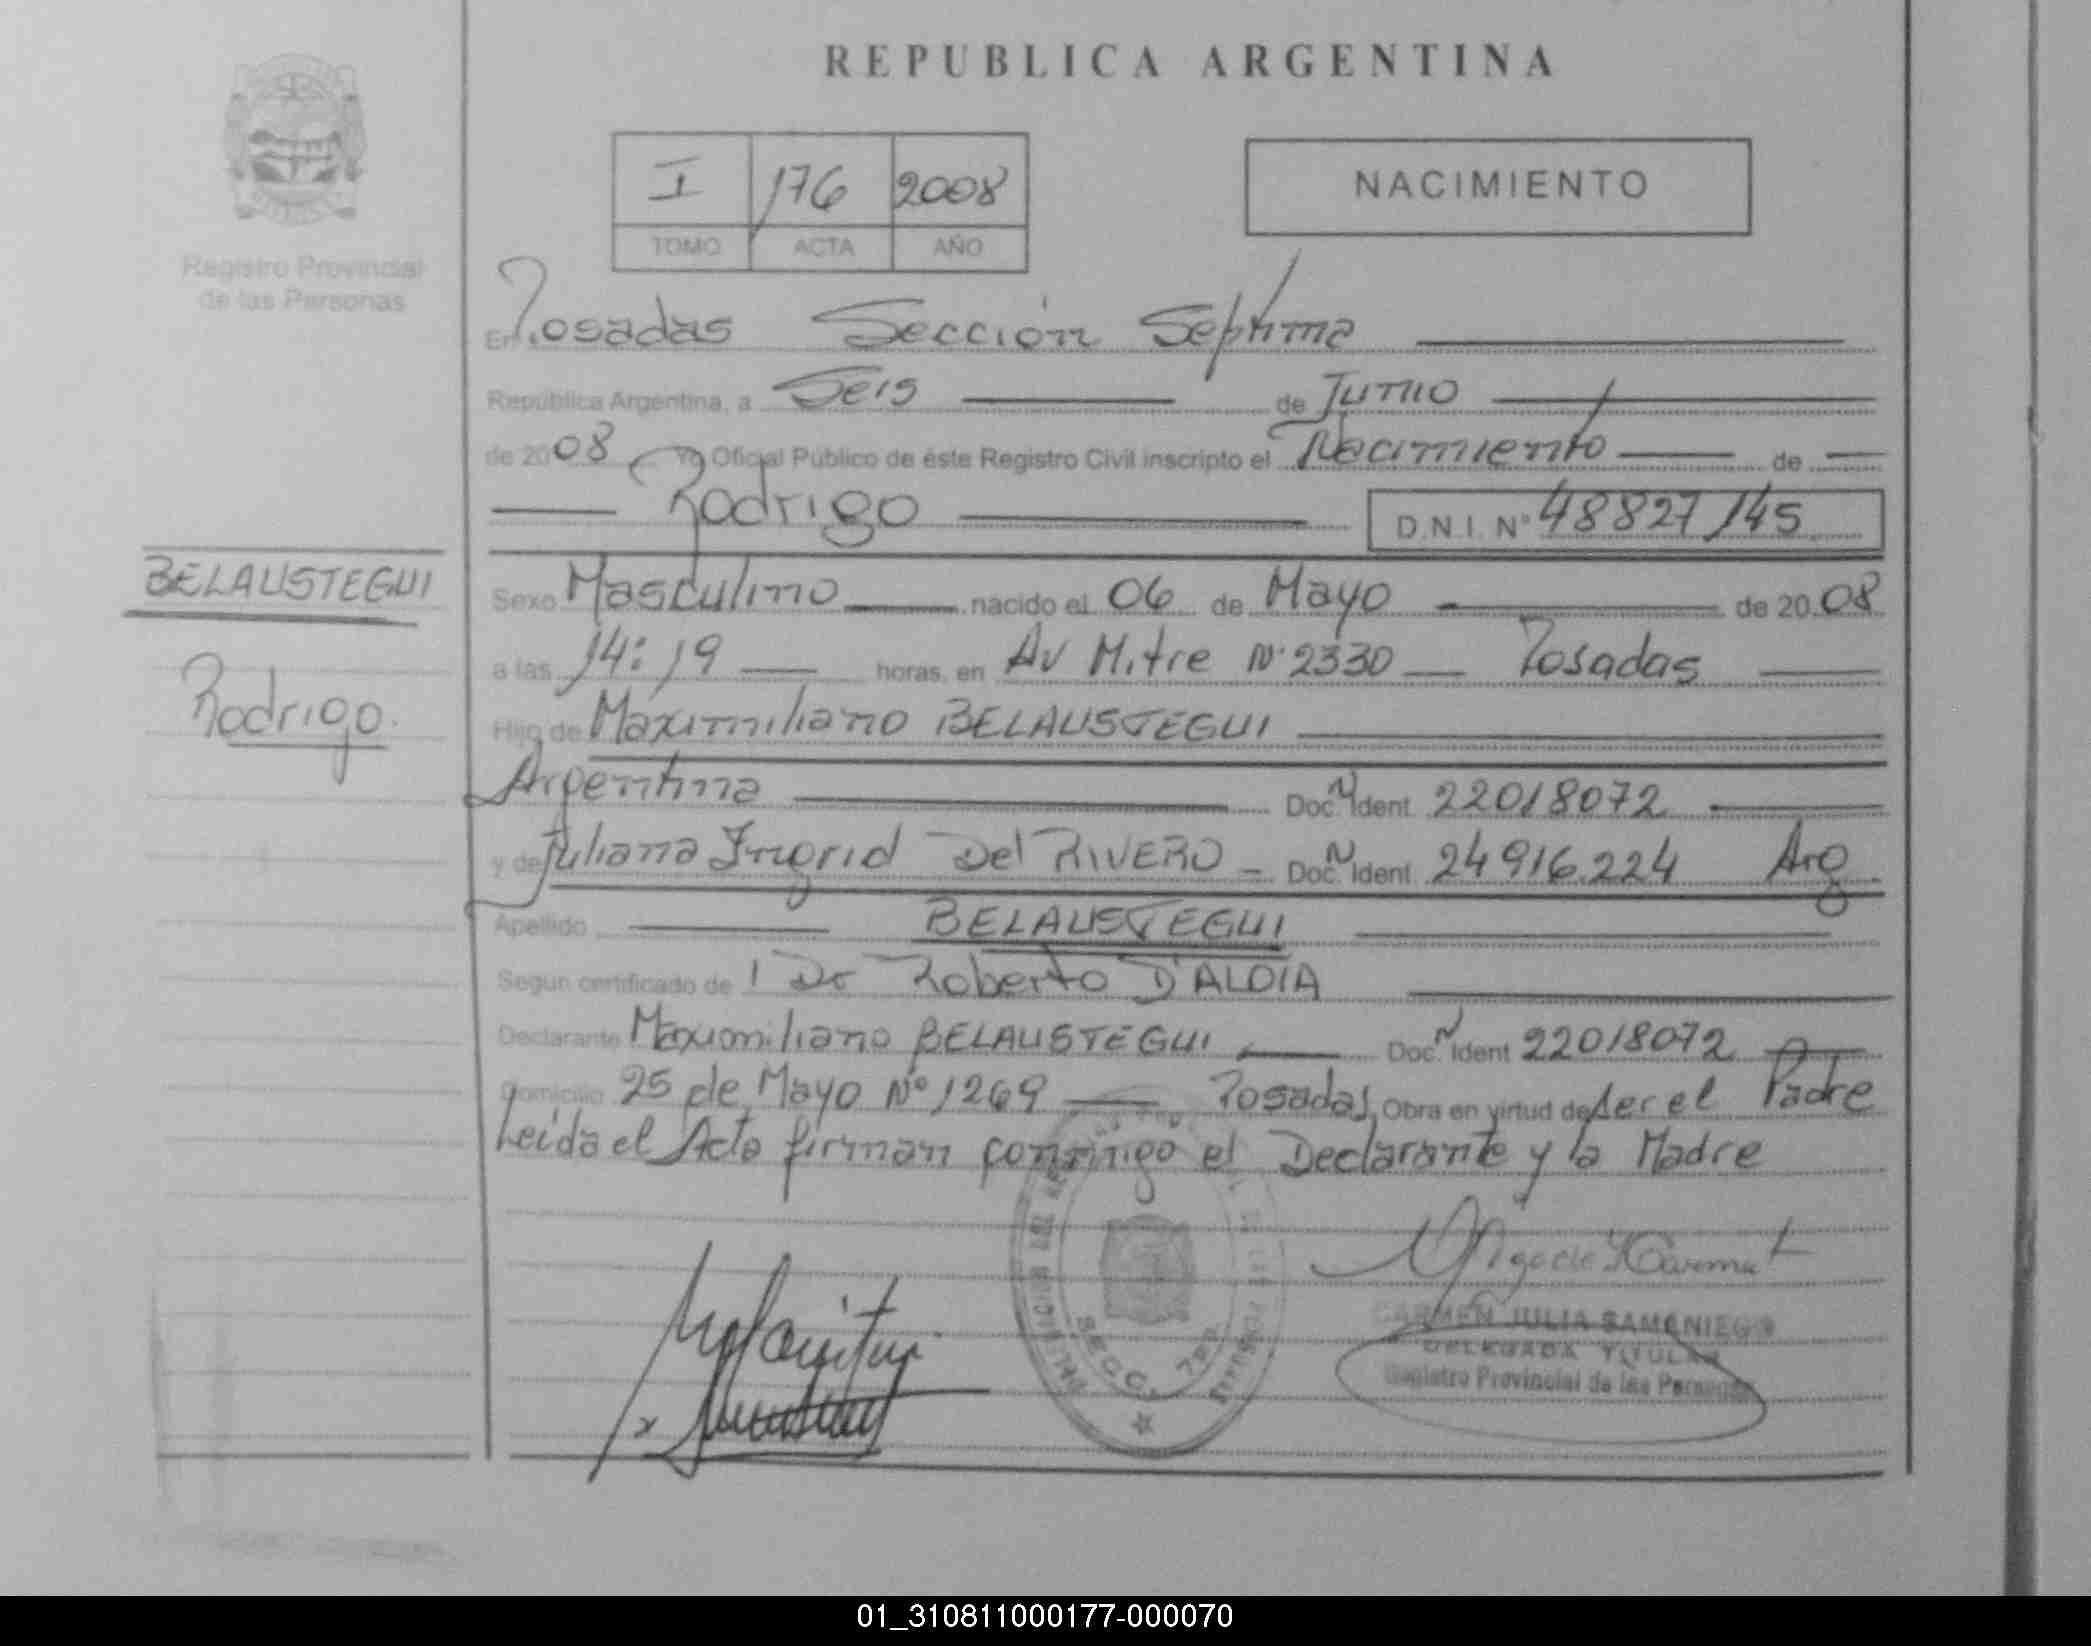 REPUBLICA ARGENTINA
I 176 2008
TOMO ACTA AÑO
NACIMIENTO
Registro Provincial
de las Personas
En Posadas Sección Septima
República Argentina, a Seis de Junio
de 2008 Yo Oficial Público de éste Registro Civil inscripto el Nacimiento de
Rodrigo D.N.I. Nº 48827145
BELAUSTEGUI
Rodrigo
Sexo Masculino nacido el 06 de Mayo de 2008
a las 14:19 horas, en Av Mitre Nº 2330 Posadas
Hijo de Maximiliano BELAUSTEGUI
Argentina Doc. N Ident. 22018072
y de Juliana Ingrid Del RIVERO Doc. N Ident. 24916.224 Arg
Apellido BELAUSTEGUI
Segun certificado de Dr Roberto D'ALOIA
Declarante Maximiliano BELAUSTEGUI Doc. N Ident 22018072
Domicilio 25 de Mayo Nº 1269 Posadas Obra en virtud de ser el Padre
Leida el Acta firman conmigo el Declarante y la Madre
SECC. 7ma
CARMEN JULIA SAMANIEGO
DELEGADA TITULAR
Registro Provincial de las Personas
01_310811000177-000070